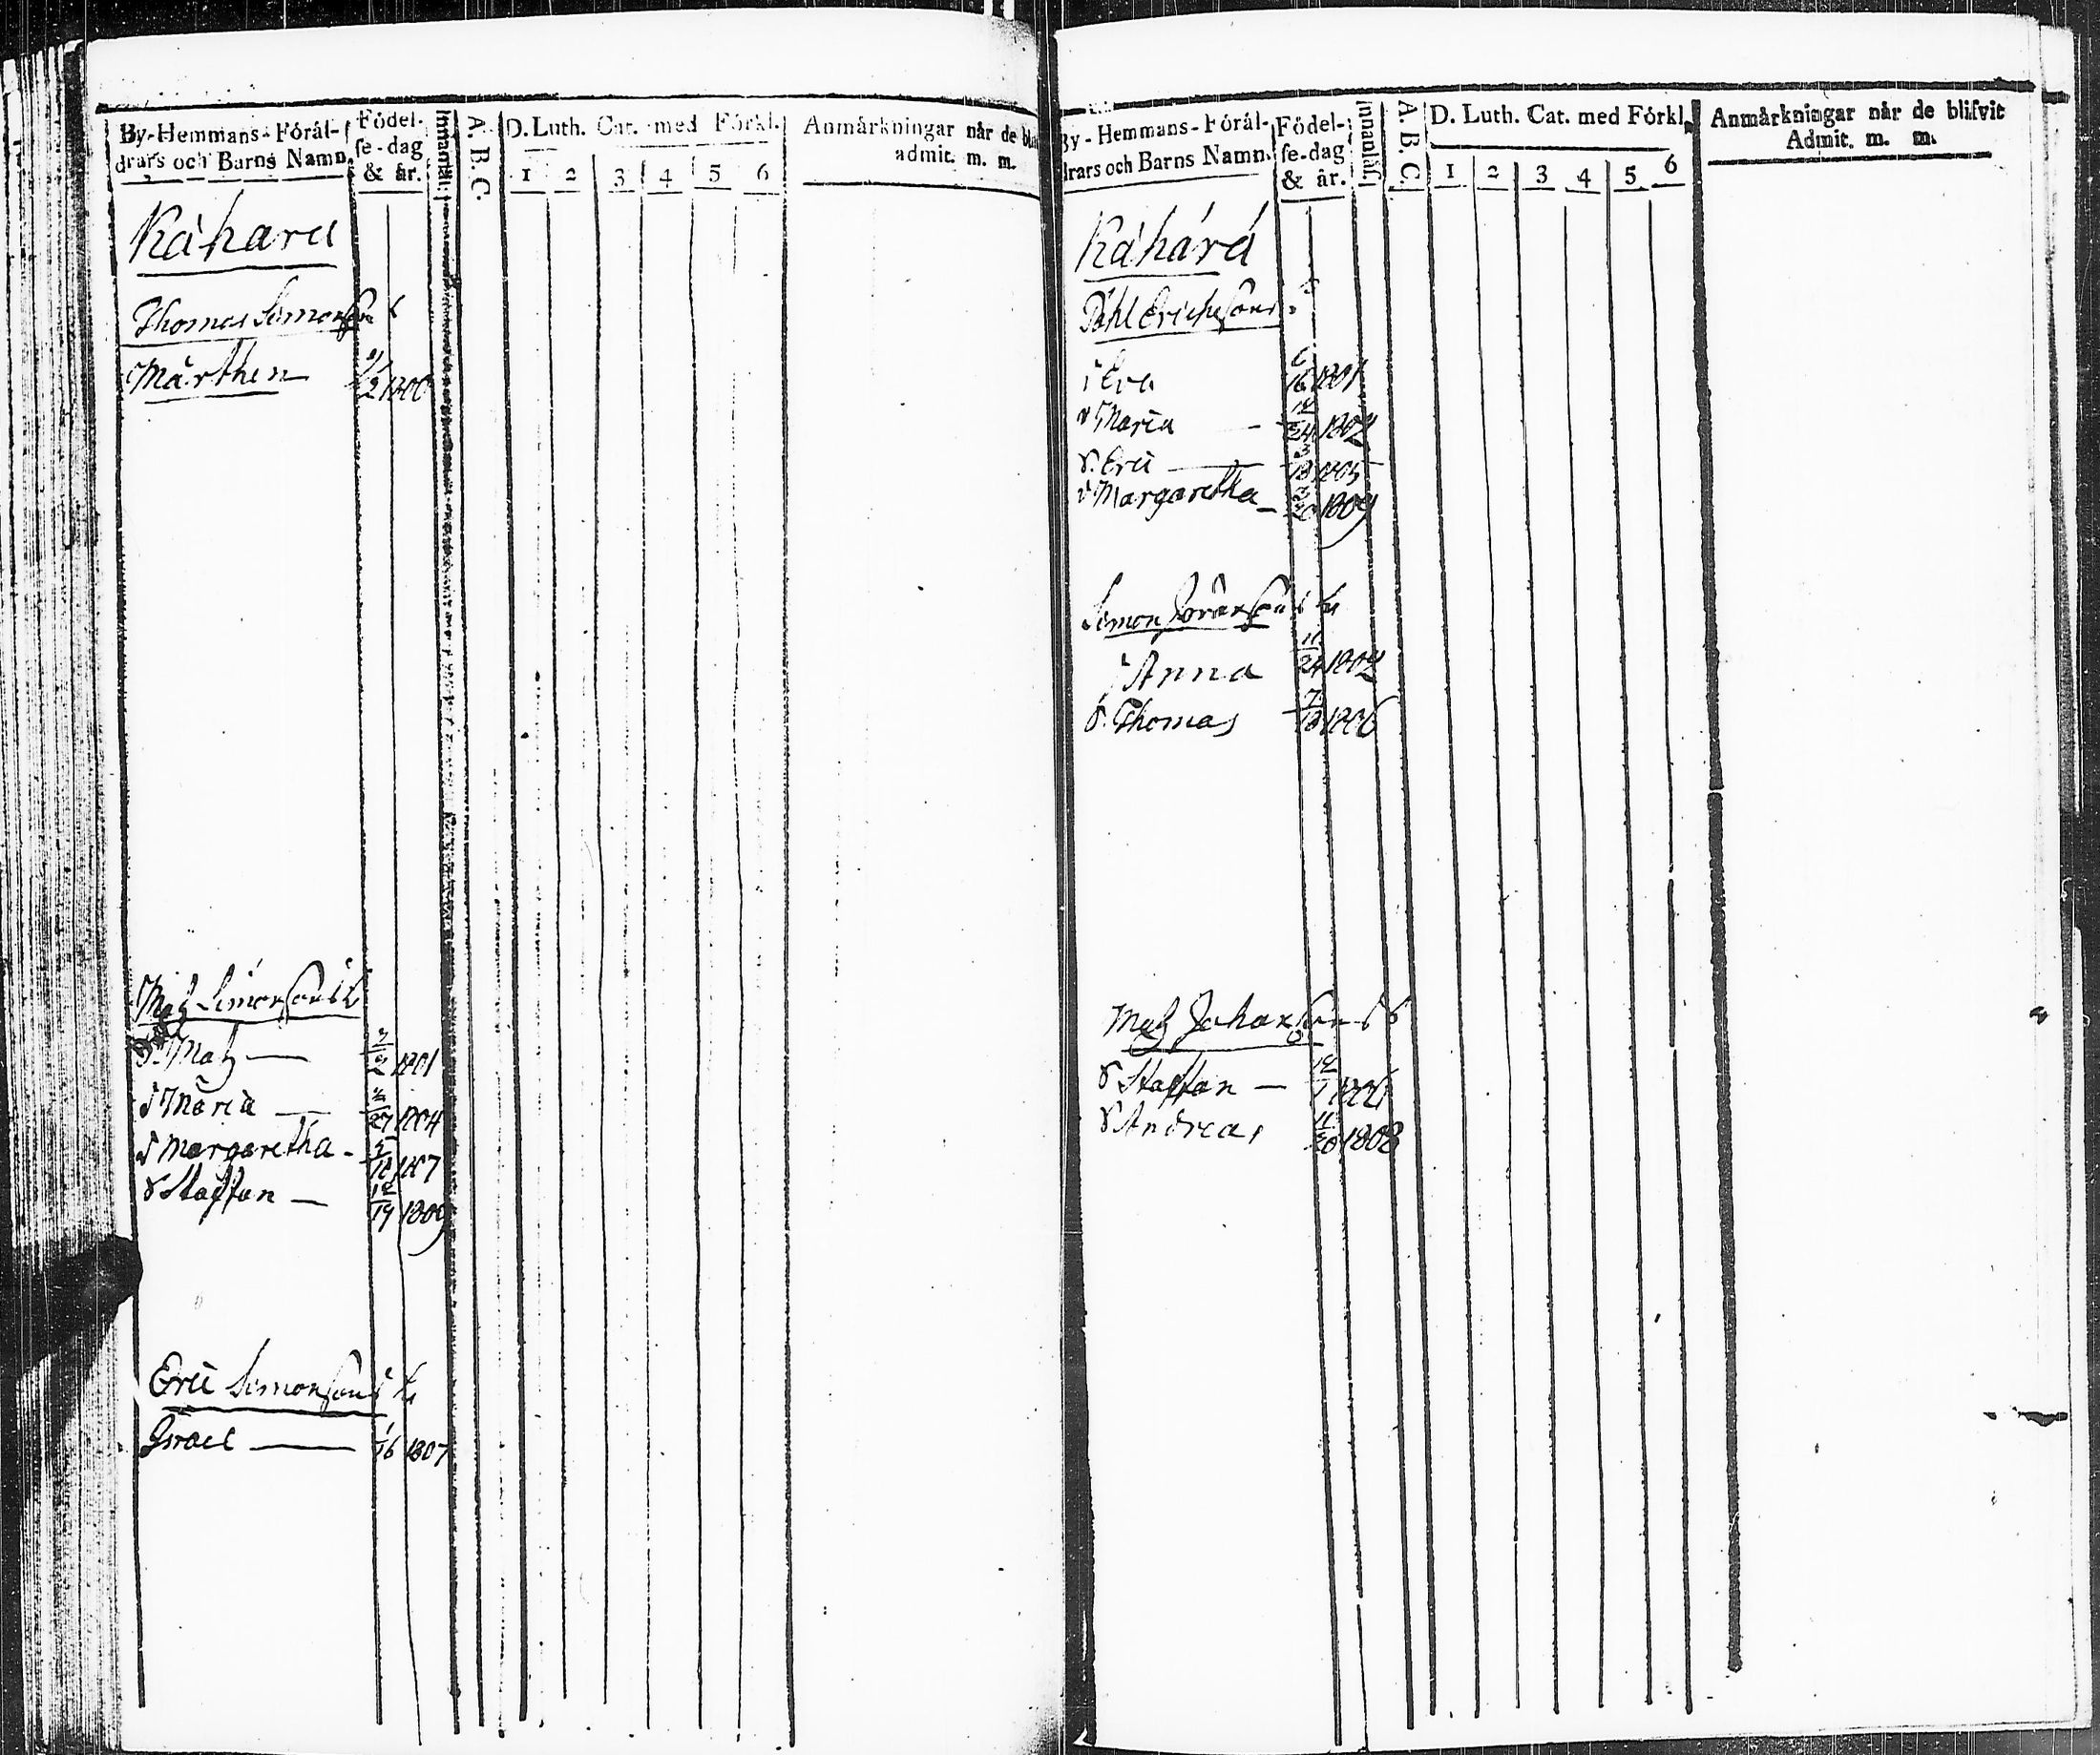 By-Hemmans-Förål-
drars och Barns Namn.
Födel-
se-dag
& år.
Innanläs.
A. B. C.
D. Luth. Cat. med Förkl.
1 2 3 4 5 6
Anmärkningar når de
admit. m. m.
Kåhara
Thomas Simonsson
Mårthen 1800
Matz Simonssons
S. Matz — 1801
d Maria — 1804
d Margaretha - 1807
S Staffan — 12/19 1809
Eric Simonssons
Israel — 1/16 1807
By-Hemmans-Förål-
drars och Barns Namn.
Födel-
se-dag
& år.
Innanläs.
A. B. C.
D. Luth. Cat. med Förkl.
1 2 3 4 5 6
Anmärkningar når de blifvit
Admit. m. m.
Kåhårå
Påhl Erichssons
d Eva 6/16 1801
d Maria — 12/24 1802
S. Eric — 3/13 1805
d Margaretha — 1809
Simon Göranssons
d Anna 11/24 1802
S. Thomas 1806
Matz Johanssons
S Staffan — 12/1
S Andreas 11/30 1808